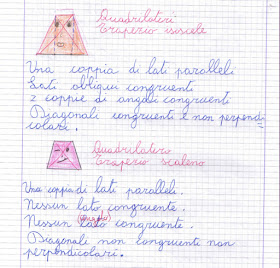 Quadrilateri
Trapezio isiscele
Una coppia di lati paralleli
Lati obliqui congruenti
2 coppie di angoli congruenti
Diagonali congruenti e non perpendi
colare.
Quadrilatero
Trapezio scaleno
Una coppia di lati paralleli.
Nessun lato congruente.
Nessun (angolo) lato congruente.
Diagonali non congruenti non
perpendicolari.